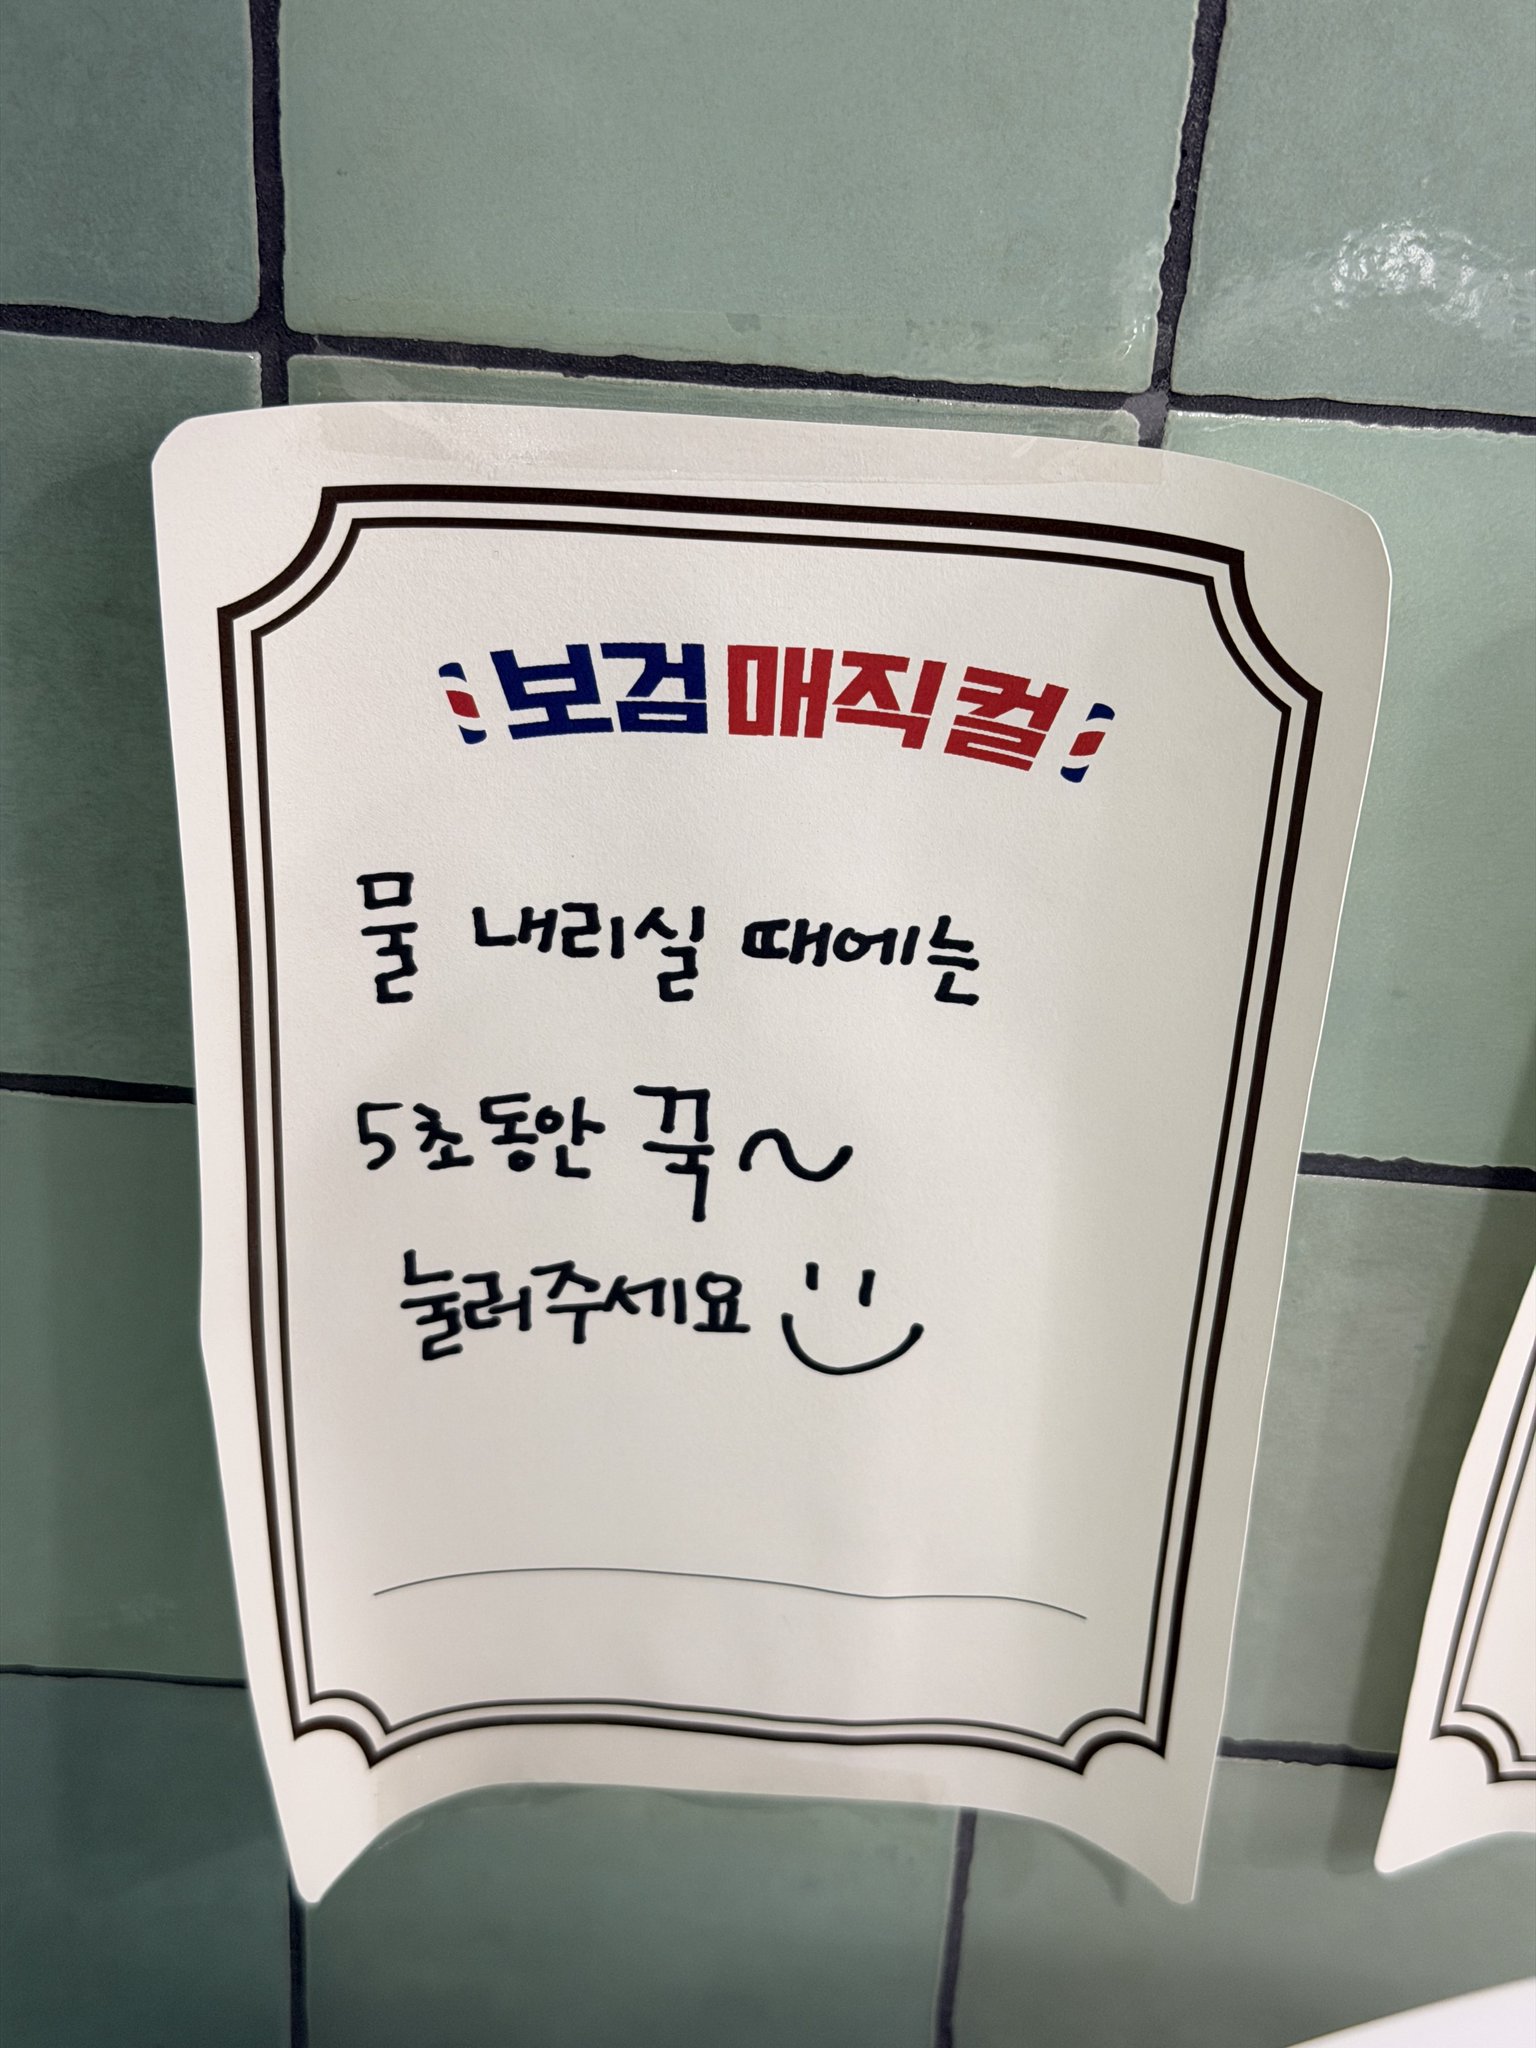 보검 매직컬
물 내리실 때에는
5초동안 꾹~
눌러주세요